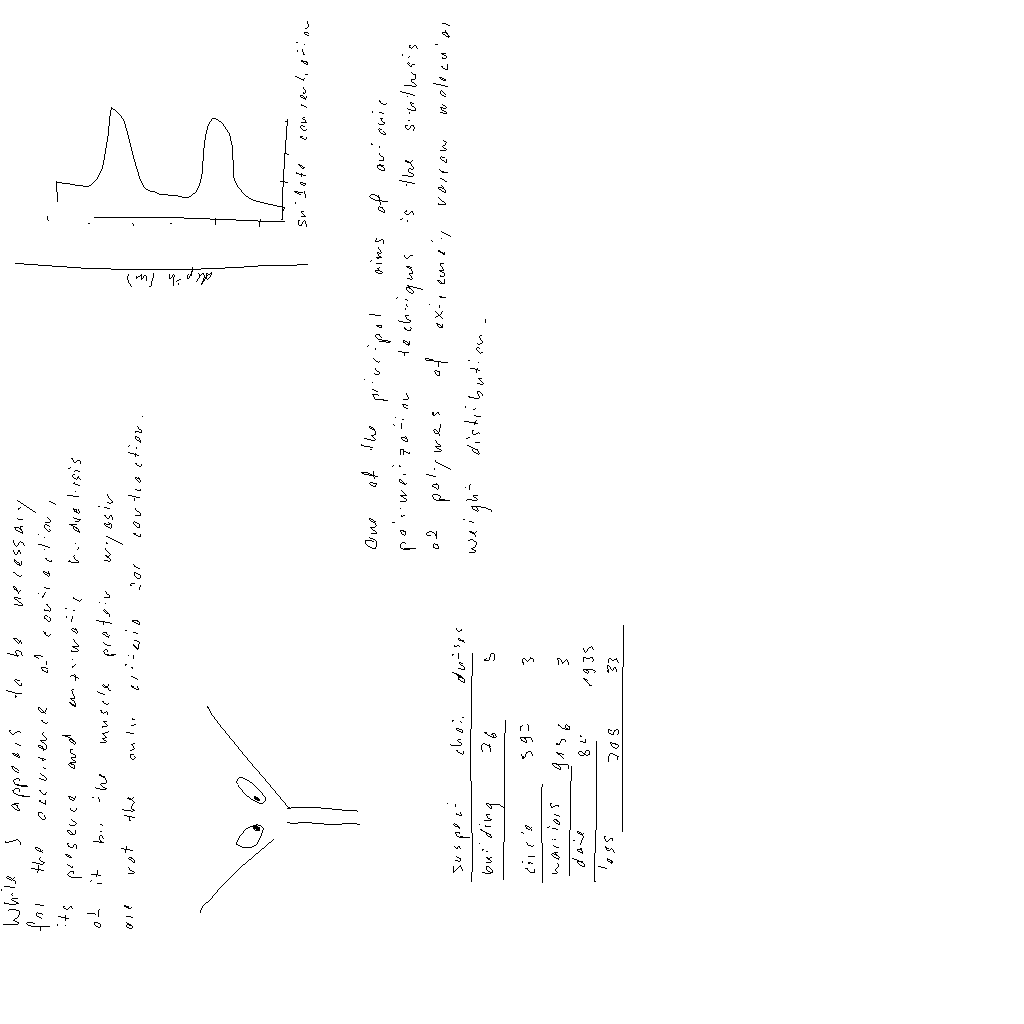 While S appears to be necessary
for the occurrence of contraction,
its presence and enzymatic hydrolysis
of it by the muscle protein myosin
are not the only criteria for contraction.
depth (m)
sulfate concentration
One of the principal aims of anionic
polymerization techniques is the synthesis
of polymers of extremely narrow molecular
weight distribution.
suspect chai
building 26 5
circle 597 3
warriors 9156 3
date 1935
loss 33